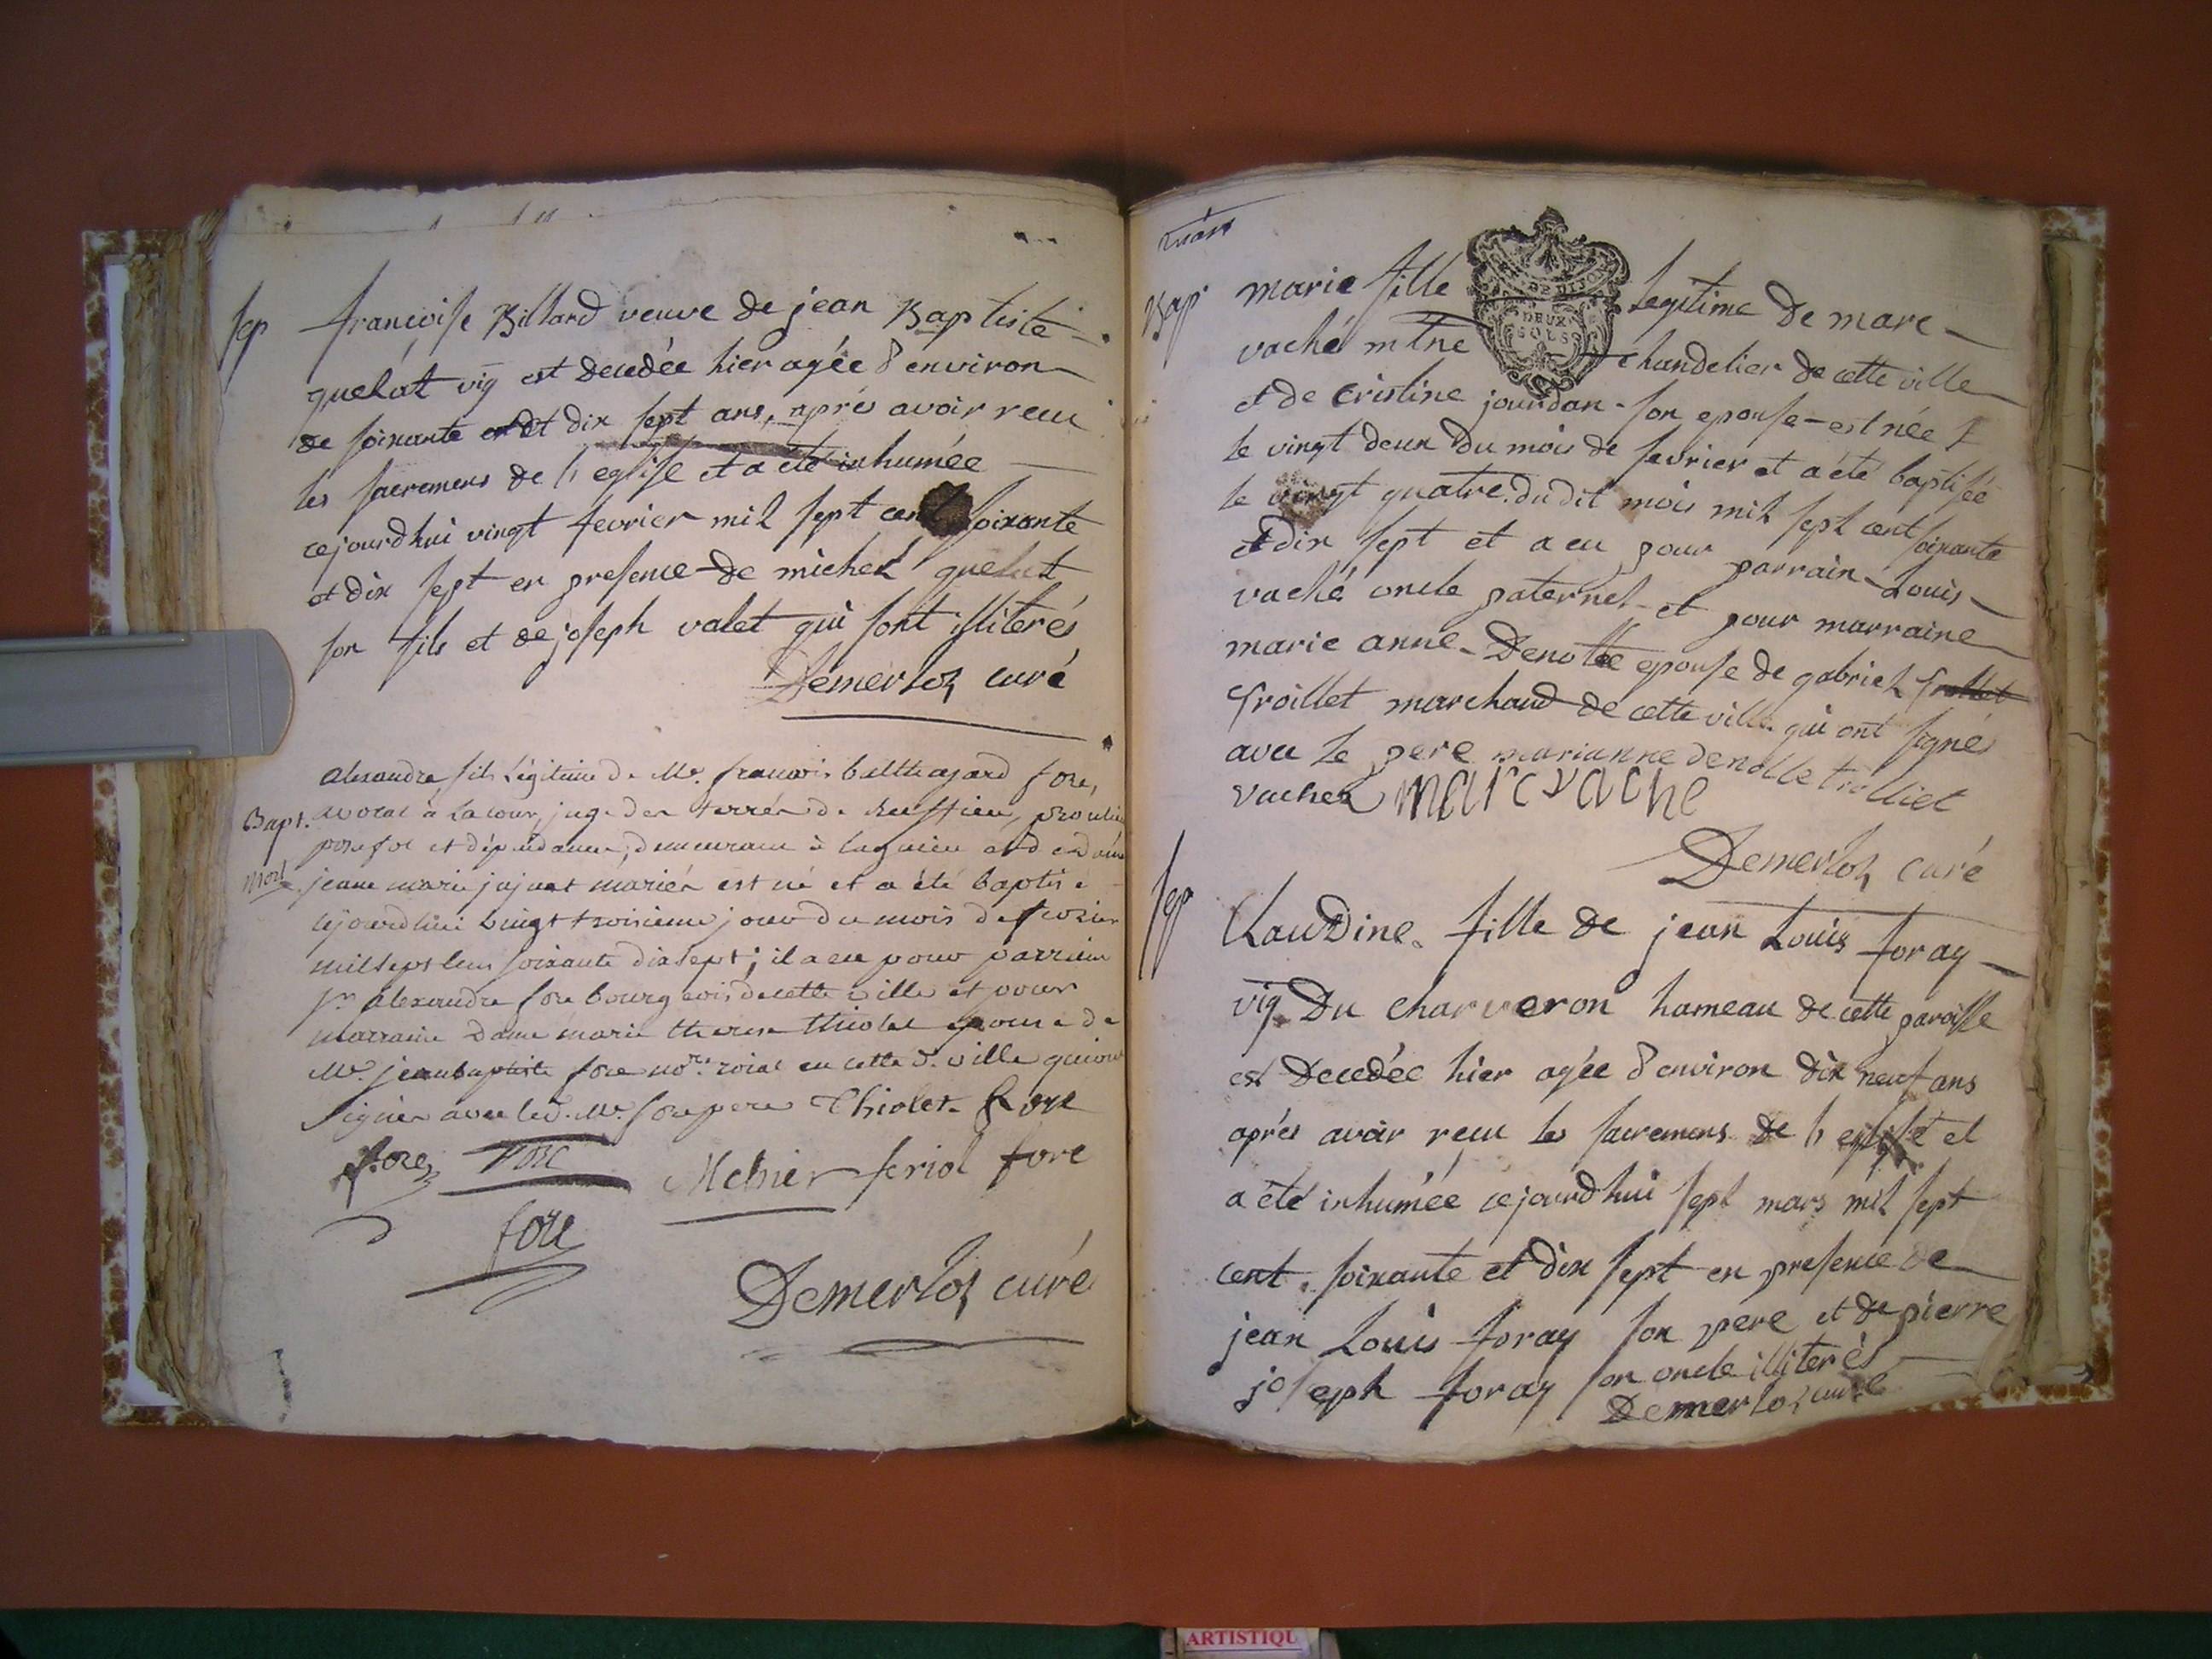 sep françoise Billard veuve de jean Baptiste
quelat vig est decedée hier agée d environ
de soixante et dix sept ans, aprés avoir recu
les sacremens de l eglise et a été inhumée
cejourdhui vingt fevrier mil sept cent soixante
et dix sept en presence de michel quelat
son fils et de joseph valet qui sont illiterés
Demerloz curé
alexandre fils légitime de Mr. françois balthazard fore,
Bapt. avocat à la cour, juge des terres de Ruffieu,
et dépendances, demeurant à lagnieu et de dame
mort jeanne marie jujuat mariés est né et a été baptisé
cejourdhui vingt troisieme jour du mois de fevrier
mil sept cent soixante dix sept; il a eu pour parrain
sr alexandre fore bourgeois de cette ville et pour
marraine dame marie therese thiolet epouse de
Mr. jean baptiste fore nore. roial en cette d. ville qui ont
signés avec led. Mr. fore pere Thiolet fore
fore fore feriol fore
fore
Demerloz curé
mars
Bap marie fille legitime de marc
DE DIJON
DEUX
SOLS
vaché mtre chandelier de cette ville
et de Cristine jourdan son epouse est née
le vingt deux du mois de fevrier et a été baptisée
le vingt quatre du dit mois mil sept cent soixante
et dix sept et a eu pour parrain Louis
vaché oncle paternel et pour marraine
marie anne Denolle epouse de gabriel
trolliet marchand de cette ville qui ont signés
avec le pere marianne denolle trolliet
vachez marc vache
Demerloz curé
sep Claudine fille de jean Louis foray
vig. Du charveron hameau de cette paroisse
est decedée hier agée d environ dix neuf ans
aprés avoir reçu les sacremens de l eglise et
a été inhumée cejourdhui sept mars mil sept
cent soixante et dix sept en presence de
jean Louis foray son pere et de pierre
joseph foray son oncle illiterés
Demerloz curé
ARTISTIQU